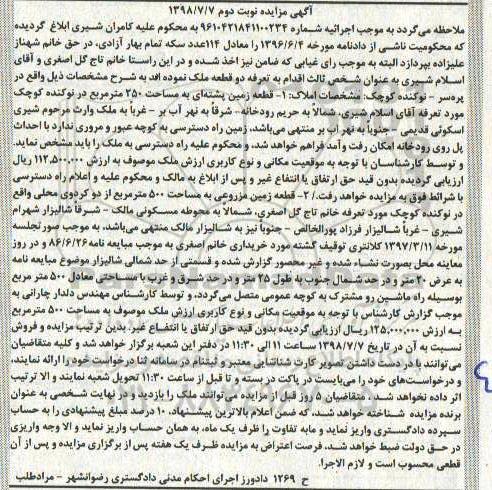 آگهی مزایده نوبت دوم ۱۳۹۸/۷/۷
ملاحظه می‌گردد به موجب اجرائیه شماره ۹۶۱۰۴۲۱۸۴۱۱۰۰۲۳۴ به محکوم علیه کامران شیری ابلاغ گردیده
که محکومیت ناشی از دادنامه مورخه ۱۳۹۶/۶/۴ را معادل ۱۱۴عدد سکه تمام بهار آزادی، در حق خانم شهناز
علیزاده بپردازد البته به موجب رای غیابی که ضامن نیز اخذ شده و در این راستا خانم تاج گل اصغری و آقای
اسلام شیری به عنوان شخص ثالث اقدام به تعرفه دو قطعه ملک نموده‌اند به شرح مشخصات ذیل واقع در
پره‌سر - نوکنده کوچک: مشخصات املاک: ۱- قطعه زمین پشته‌ای به مساحت ۲۵۰ مترمربع در نوکنده کوچک
مورد تعرفه آقای اسلام شیری، شمالاً به حریم رودخانه- شرقاً به نهر آب بر - غرباً به ملک وارث مرحوم شیری
اسکوئی قدیمی - جنوباً به نهر آب بر منتهی می‌باشد، زمین راه دسترسی به کوچه عبور و مروری ندارد با احداث
پل روی رودخانه امکان رفت وآمد فراهم خواهد شد، و محکوم علیه راه دسترسی به ملک را باید مشخص نماید.
و توسط کارشناسان با توجه به موقعیت مکانی و نوع کاربری ارزش ملک موصوف به ارزش ۱۱۲,۵۰۰,۰۰۰ ریال
ارزیابی گردیده بدون قید حق ارتفاق یا انتفاع غیر و پس از ابلاغ به مالک و محکوم علیه و اعلام راه دسترسی
با شرائط فوق به مزایده خواهد رفت./ ۲- قطعه زمین مزروعی به مساحت ۵۰۰ مترمربع از دو کردوی محلی واقع
در نوکنده کوچک مورد تعرفه خانم تاج گل اصغری، شمالا به محوطه مسکونی مالک - شرقاً شالیزار شهرام
شیری - غرباً شالیزار فرزاد پورالخالص - جنوباً نیز به شالیزار مالک منتهی می‌باشد، به موجب صورتجلسه
مورخه ۱۳۹۷/۳/۱۱ کلانتری توقیف گشته مورد خریداری خانم اصغری به موجب مبایعه نامه ۸۶/۶/۲۶ و در روز
معاینه محل بصورت نشاء شده و غیر محصور گزارش شده و قسمتی از حد شمالی شالیزار موضوع مبایعه نامه
به عرض ۲۰ متر و در حد شمال جنوب به طول ۲۵ متر و در حد شرق و غرب با مساحتی معادل ۵۰۰ متر مربع
بوسیله راه ماشین رو مشترک به کوچه عمومی متصل می‌گردد، و توسط کارشناس مهندس دلدار چارانی به
موجب گزارش کارشناس با توجه به موقعیت مکانی و نوع کاربری ارزش ملک موصوف به مساحت ۵۰۰ مترمربع
به ارزش ۱۲۵,۰۰۰,۰۰۰ ریال ارزیابی گردیده بدون قید حق ارتفاق یا انتفاع غیر. بدین ترتیب مزایده و فروش
نسبت به آن در تاریخ ۱۳۹۸/۷/۷ ساعت ۱۱ الی ۱۱:۳۰ در دفتر این شعبه برگزار خواهد شد و کلیه متقاضیان
می‌توانند با در دست داشتن تصویر کارت شناسایی معتبر و ثبتنام در سامانه ثنا درخواست خود را ارائه نمایند،
و درخواست‌های خود را می‌بایست در پاکت در بسته و تا قبل از ساعت ۱۱:۳۰ تحویل شعبه نمایند و الا ترتیب
اثر داده نخواهد شد. متقاضیان ۵ روز قبل از مزایده می‌توانند ملک را بازدید و در نهایت شخصی به عنوان
برنده مزایده شناخته خواهد شد، که ضمن اعلام بالاترین پیشنهاد، ۱۰ درصد مبلغ پیشنهادی را به حساب
سپرده دادگستری واریز نماید و مابه تفاوت را ظرف یک ماه، به همان حساب واریز نماید و الا وجه واریزی
در حق دولت ضبط خواهد شد. فرصت اعتراض به مزایده ظرف یک هفته پس از برگزاری مزایده و پس از آن
قطعی محسوب است و لازم الاجرا.
ح ۱۲۶۹ دادورز اجرای احکام مدنی دادگستری رضوانشهر - مرادطلب